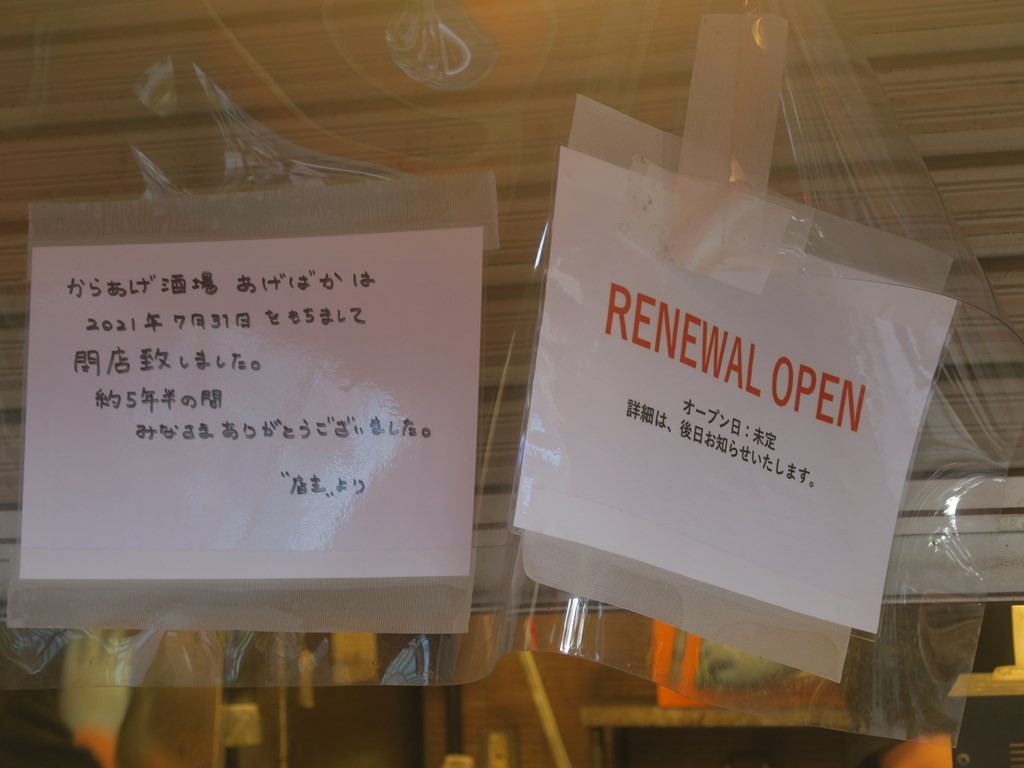 からあげ酒場 あげばか は
2021年 7月31日 をもちまして
閉店致しました。
約5年半の間
みなさまありがとうございました。
"店主"より
RENEWAL OPEN
オープン日：未定
詳細は、後日お知らせいたします。